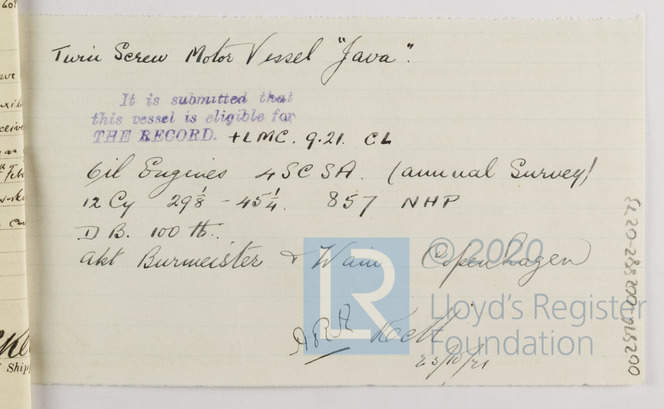 Twin Screw Motor Vessel "Java".
It is submitted that
this vessel is eligible for
THE RECORD. + LMC. 9.21. CL
Oil Engines 4SCSA. (annual Survey)
12 Cy 29⅛ - 45¼. 857 NHP
DB. 100 lb.
Akt Burmeister & Wain Copenhagen
ARR
23/10/21
© 2020
LR
Lloyd's Register
Foundation
002576-002582-0273
Ship